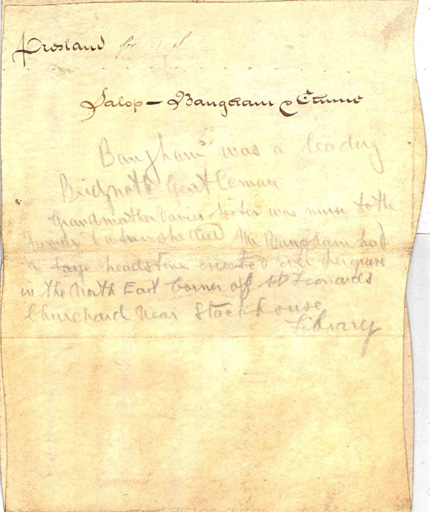 Presland for
Salop – Bangham & Exuno
"Bangham" was a leading
Bridgnoth Gentleman
Grandmother Davies sister was nurse to the
Family & when she died Mr Bangham had
a large headstone erected over her grave
in the North East Corner of St Leonards
Churchard Near Stackhouse
Library